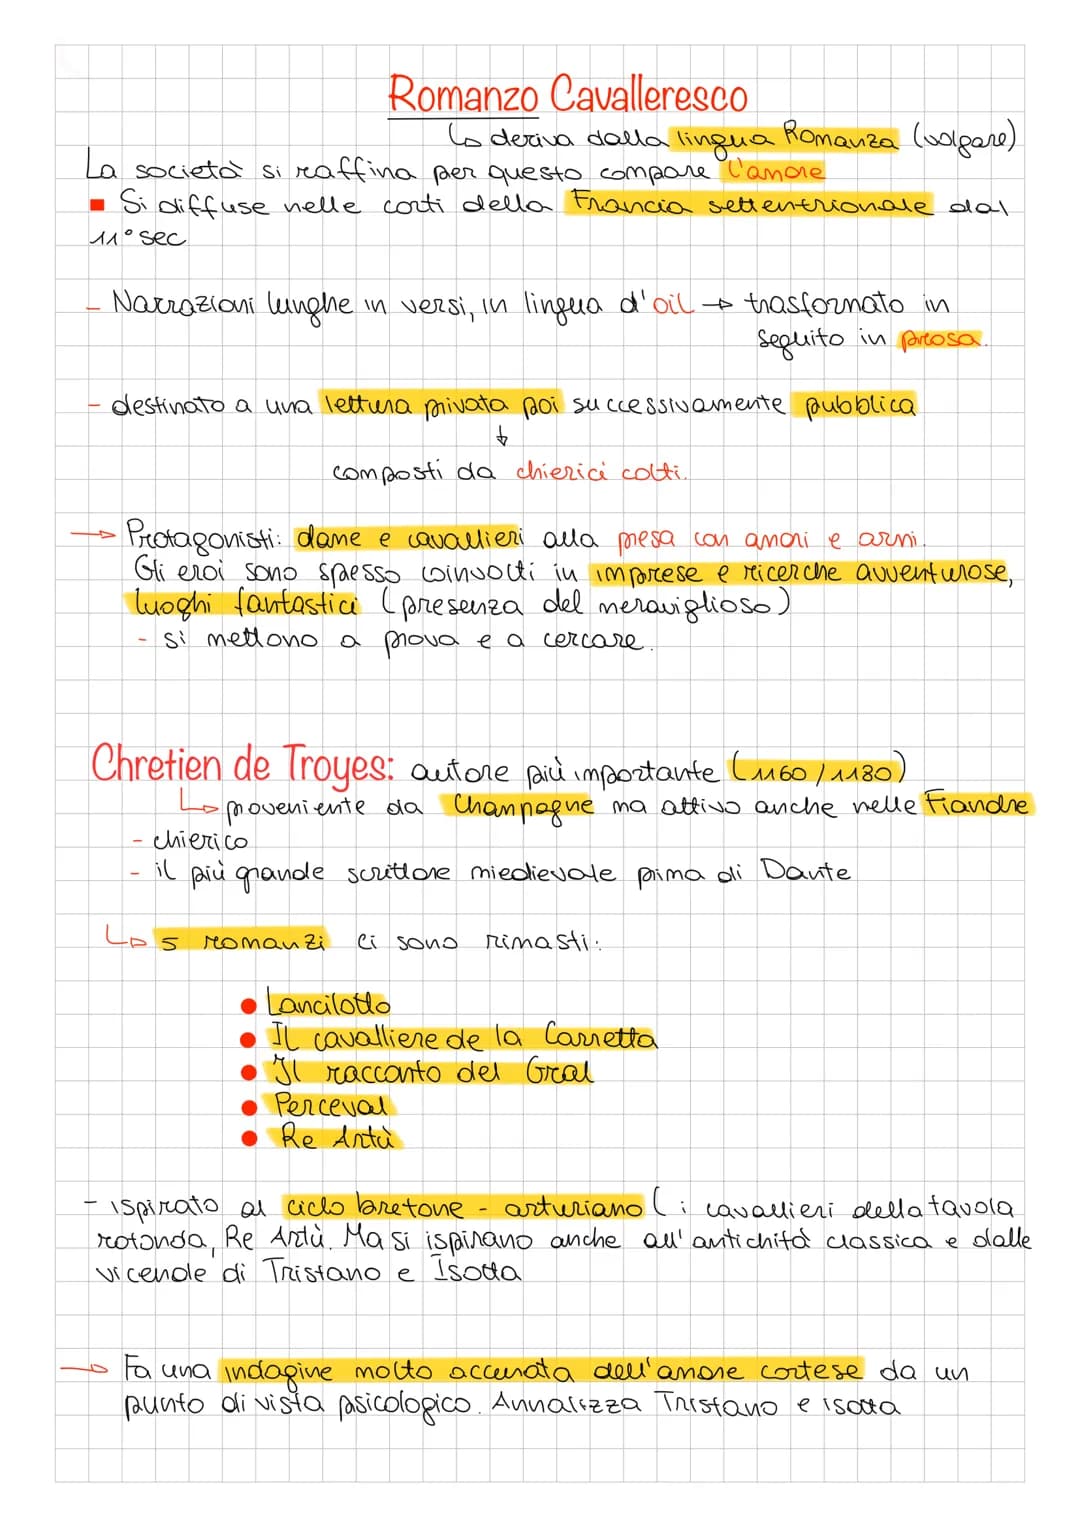 Romanzo Cavalleresco
↳ deriva dalla lingua Romanza (volgare)
La società si raffina per questo compare l'amore
▪ Si diffuse nelle corti della Francia settentrionale dal
11° sec
- Narrazioni lunghe in versi, in lingua d'oil → trasformato in
seguito in prosa.
- destinato a una lettura privata poi successivamente pubblica
↓
composti da chierici colti.
→ Protagonisti: dame e cavallieri alla presa con amori e armi.
Gli eroi sono spesso coinvolti in imprese e ricerche avventurose,
luoghi fantastici (presenza del meraviglioso)
- si mettono a prova e a cercare.
Chretien de Troyes: autore più importante (1160/1180)
↳ proveniente da Champagne ma attivo anche nelle Fiandre
- chierico
- il più grande scrittore miedievale prima di Dante
↳ 5 romanzi ci sono rimasti:
• Lancilotto
• Il cavalliere de la Carretta
• Il racconto del Gral
• Perceval
• Re Artù
- ispirato al ciclo bretone - arturiano (i cavallieri della tavola
rotonda, Re Artù. Ma si ispirano anche all'antichità classica e dalle
vicende di Tristano e Isotta
→ Fa una indagine molto accurata dell'amore cortese da un
punto di vista psicologico. Annalizza Tristano e isotta